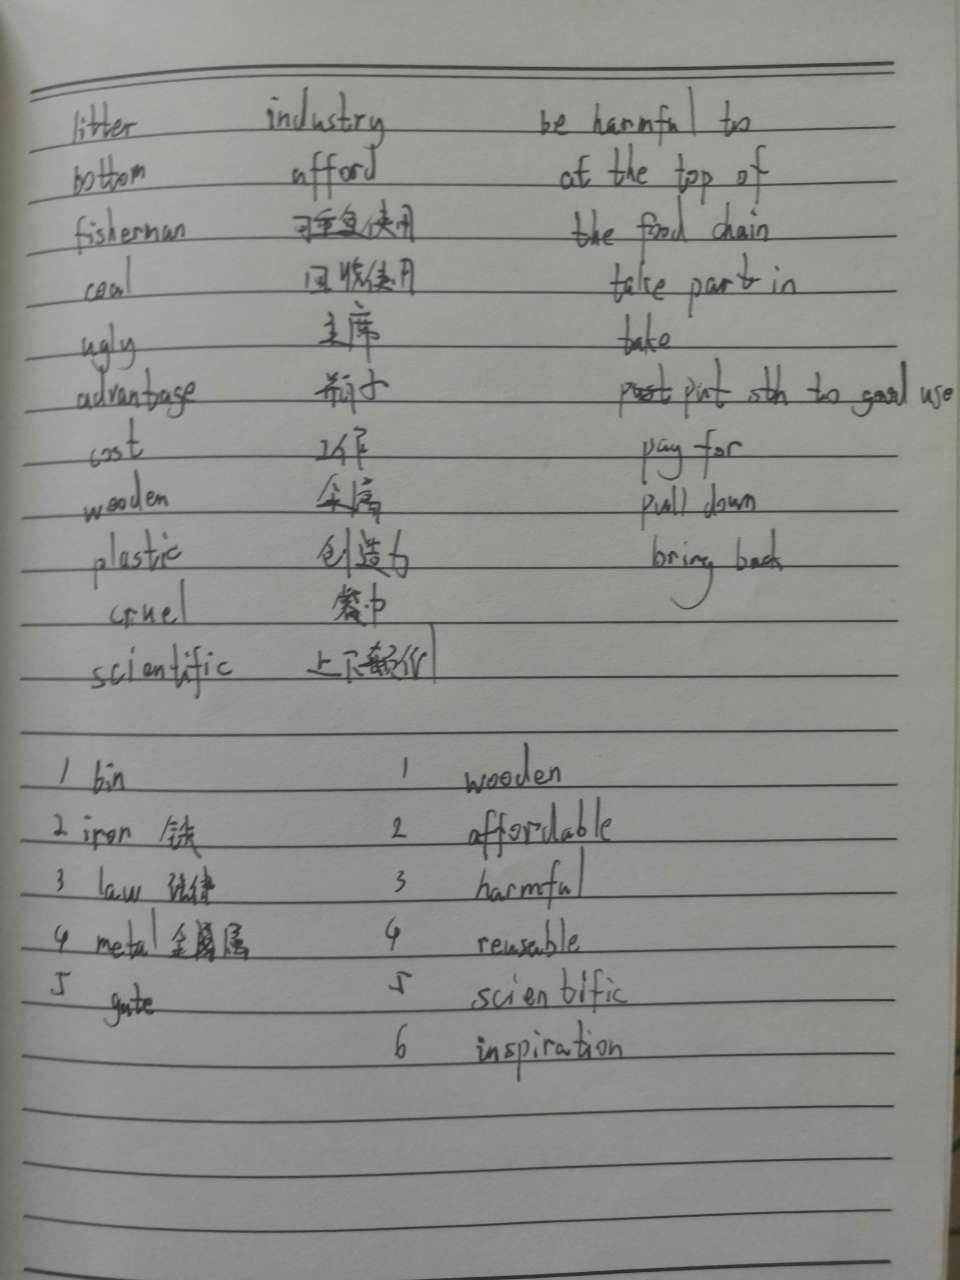 litter industry be harmful to
bottom afford at the top of
fisherman 可重复使用 the food chain
coal 回收使用 take part in
ugly 主席 take
advantage put sth to good use
cost pay for
wooden 金属 pull down
plastic 创造力 bring back
cruel
scientific 上下颠倒
1 bin 1 wooden
2 iron 铁 2 affordable
3 law 法律 3 harmful
4 metal 金属 4 reusable
5 gate 5 scientific
6 inspiration